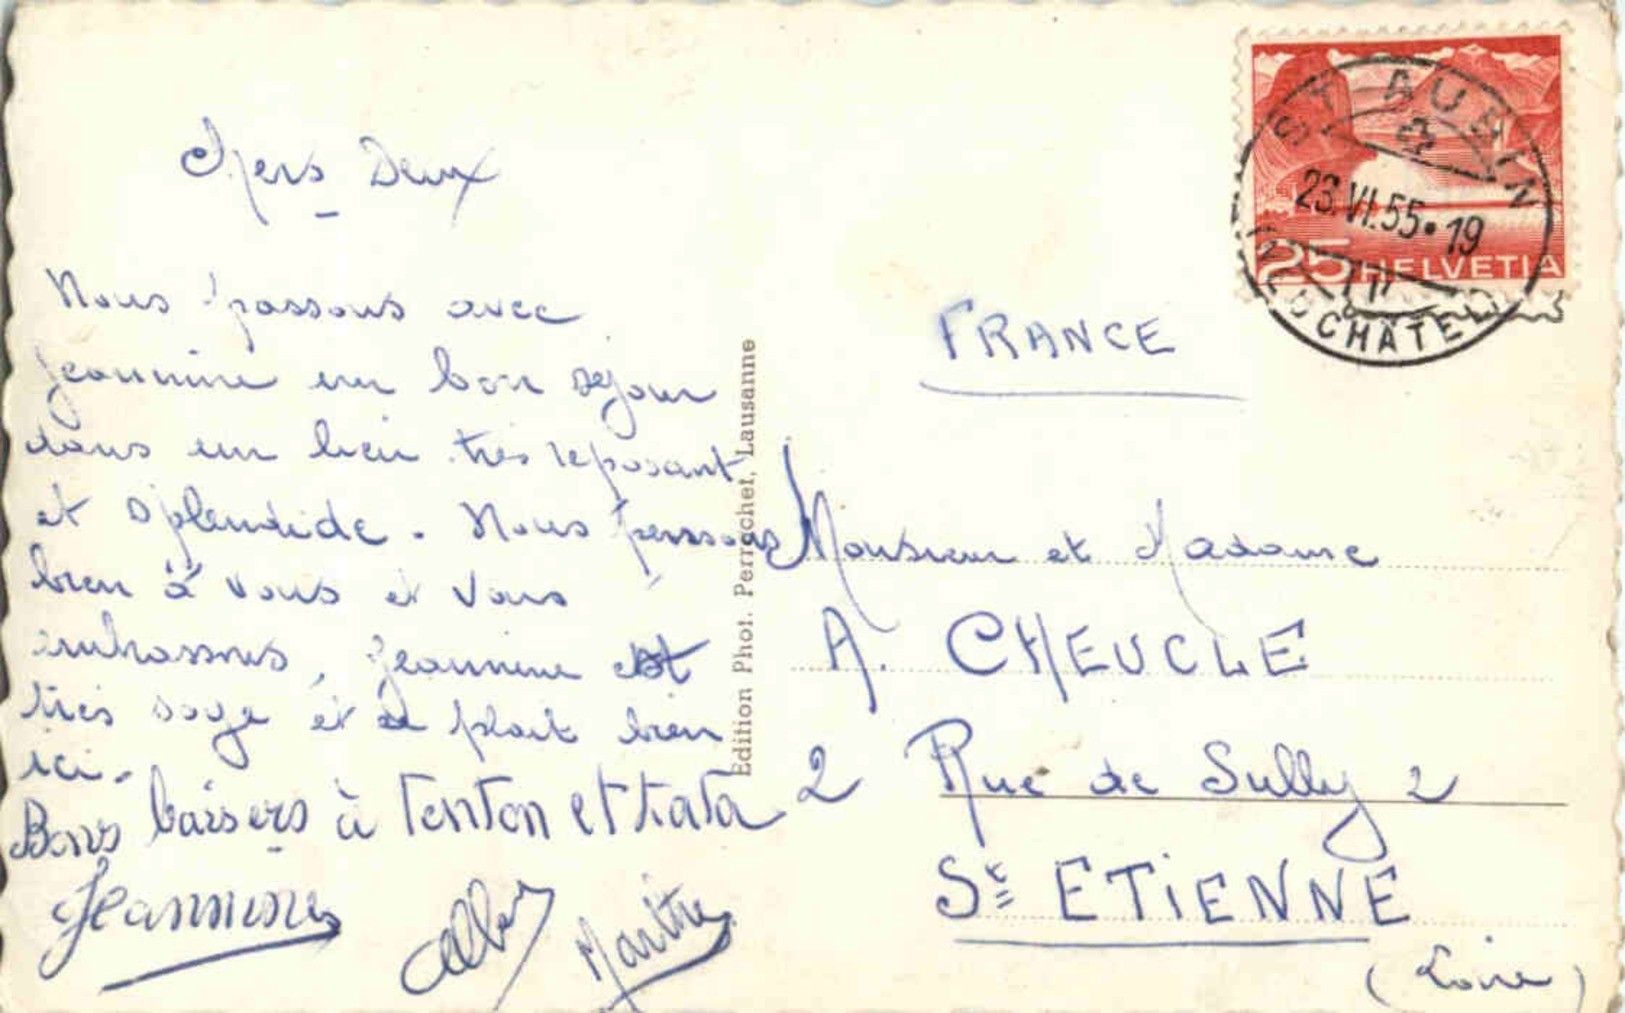 Chers Deux
Nous passons avec
Jeannine un bon séjour
dans un lieu très reposant
et splendide. Nous pensons
bien à vous et vous
embrassons, Jeannine est
très sage et se plait bien
ici.
Bons baisers à Tonton et tata
Jeannine
Marthe
Edition Phot. Perrochet, Lausanne
ST AUBIN
23.VI.55•19
(NEUCHÂTEL)
25 HELVETIA
FRANCE
Monsieur et Madame
A. CHEUCLE
2 Rue de Sully 2
St ETIENNE
(Loire)